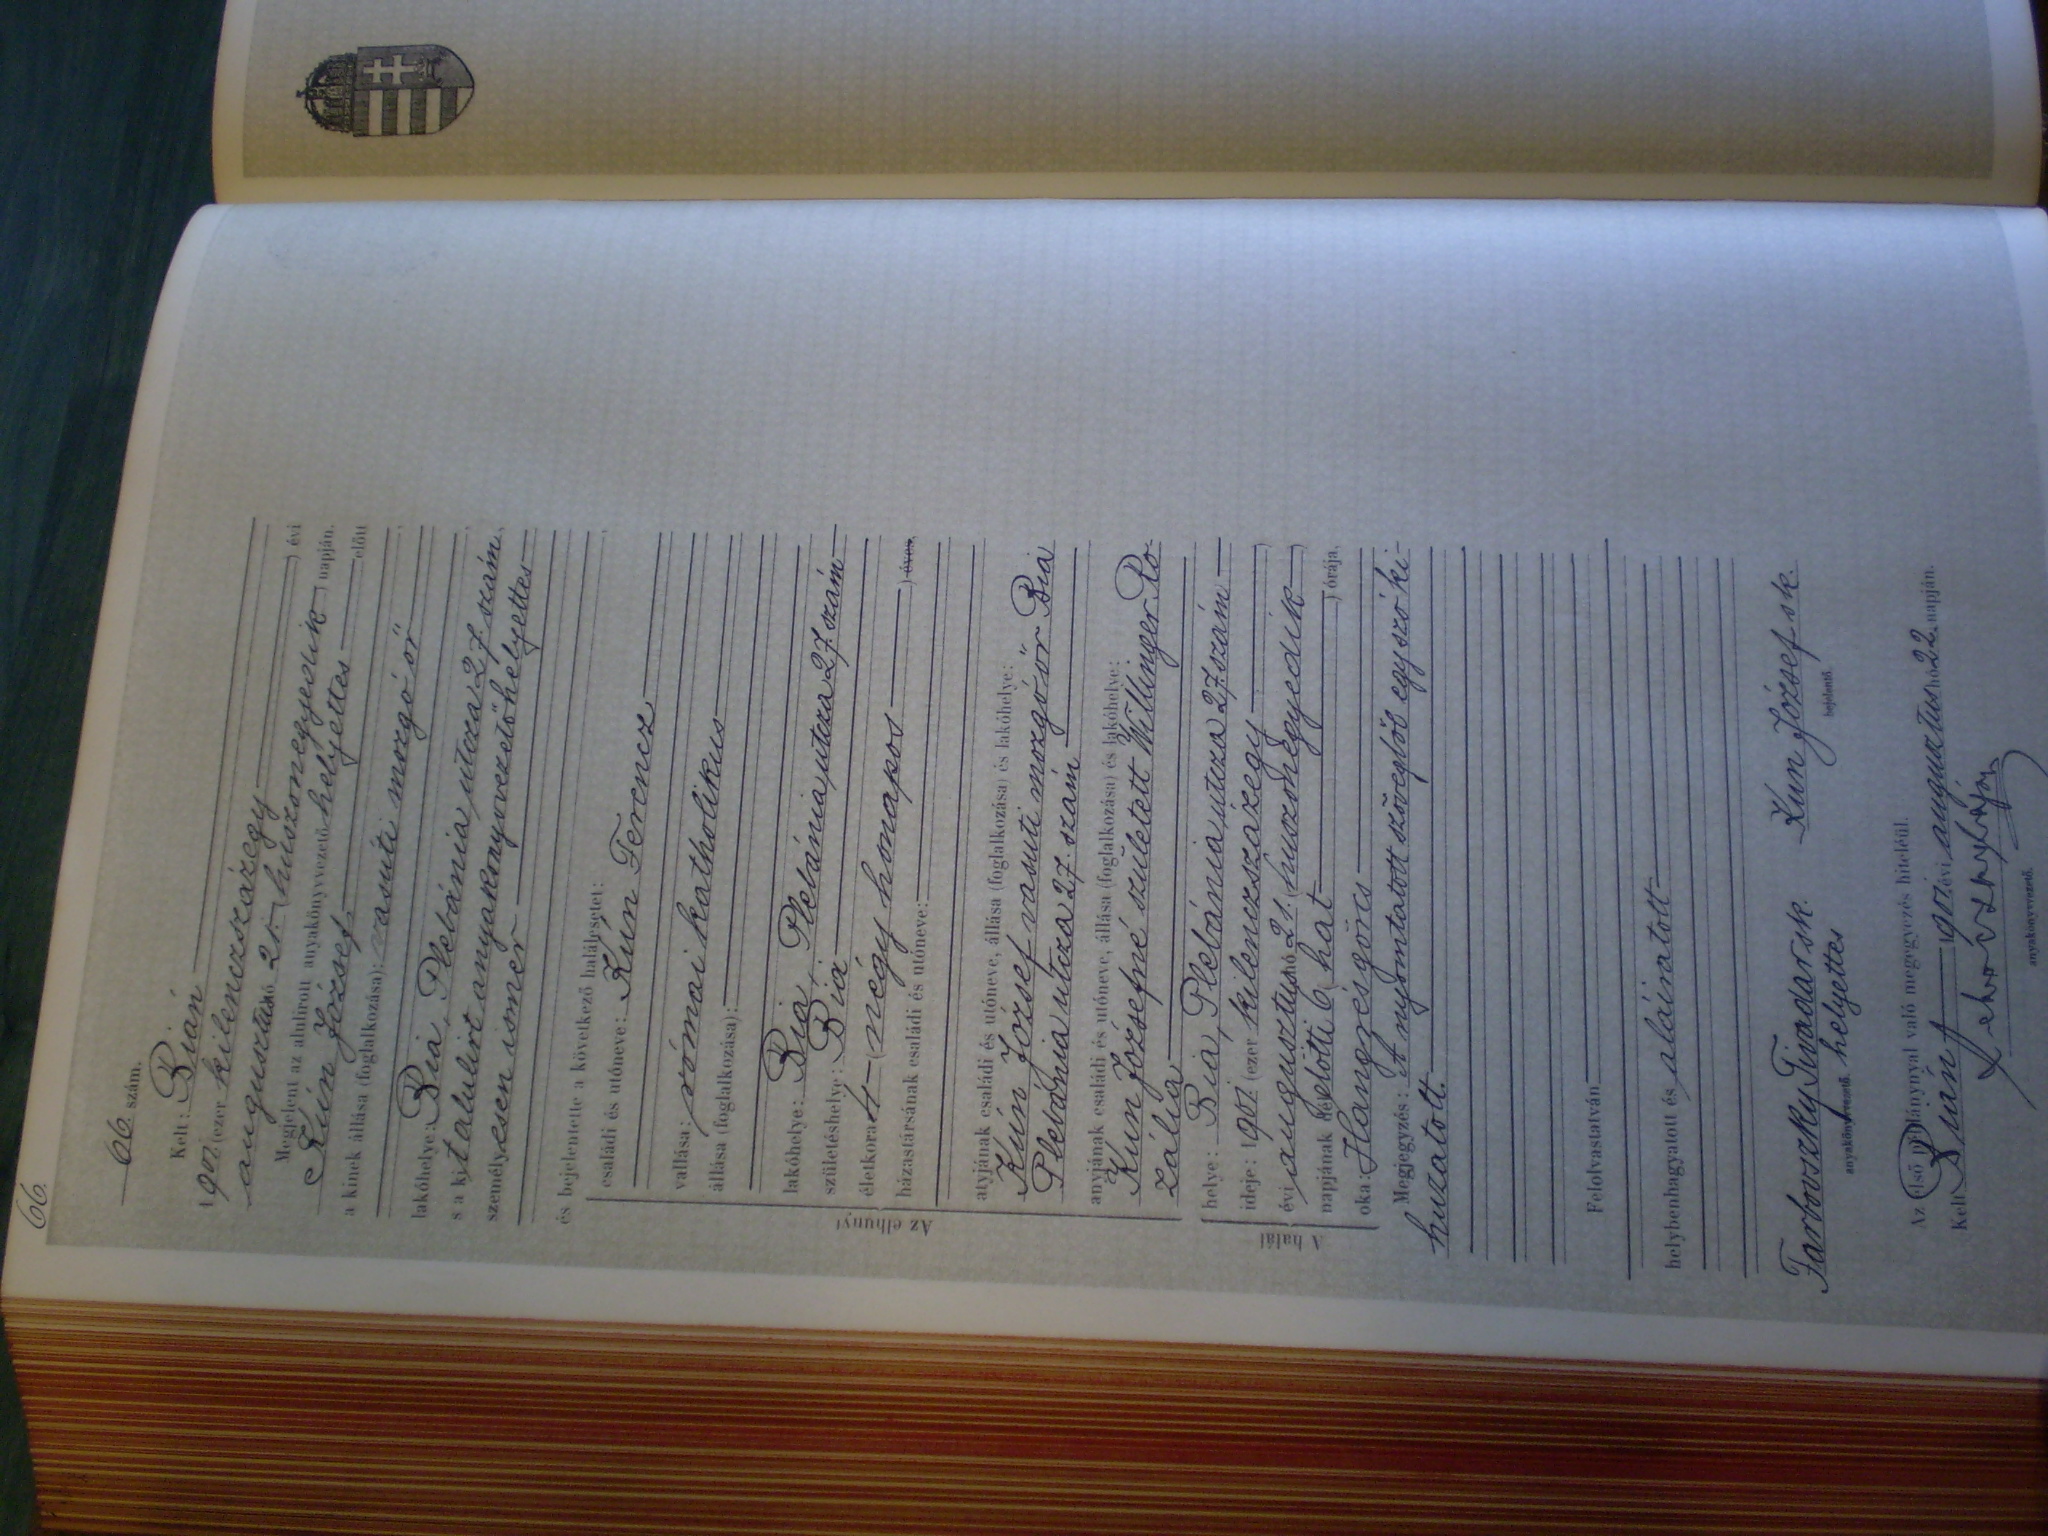 66.
66. szám.
Kelt: Bián
1901 (ezer kilenczszázegy) évi
augusztus hó 21. (huszonegyedik) napján.
Megjelent az alulírott anyakönyvvezető helyettes előtt
Kún József
a kinek állása (foglalkozása): vasúti mozgó őr
lakóhelye: Bia, Plebánia utcza 27. szám
s a kit alulírt anyakönyvvezető helyettes
személyesen ismer
és bejelentette a következő halálesetet:
Az elhunyt
családi és utóneve: Kún Ferencz
vallása: római katholikus
állása (foglalkozása):
lakóhelye: Bia, Plebánia utcza 27. szám
születéshelye: Bia
életkora 4 (négy hónapos) éves,
házastársának családi és utóneve:
atyjának családi és utóneve, állása (foglalkozása) és lakóhelye:
Kún József vasuti mozgó őr Bia
Plebánia utcza 27. szám
anyjának családi és utóneve, állása (foglalkozása) és lakóhelye:
Kún Józsefné született Willinger Ro-
zália
A halál
helye: Bia, Plebánia utcza 27. szám
ideje: 1901 (ezer kilenczszázegy)
évi augusztus hó 21. (huszonegyedik)
napjának délelőtti 6 (hat) órája,
oka: Hangrésgörcs
Megjegyzés: A nyomtatott szövegből egy szó ki-
huzatott.
Felolvastatván
helybenhagyatott és aláíratott
Farbovszky Tivadar sk. Kun József sk.
anyakönyvvezető. helyettes bejelentő.
Az első példánynyal való megegyezés hiteléül.
Kelt Bián 1901 évi augusztus hó 22. napján.
anyakönyvvezető.